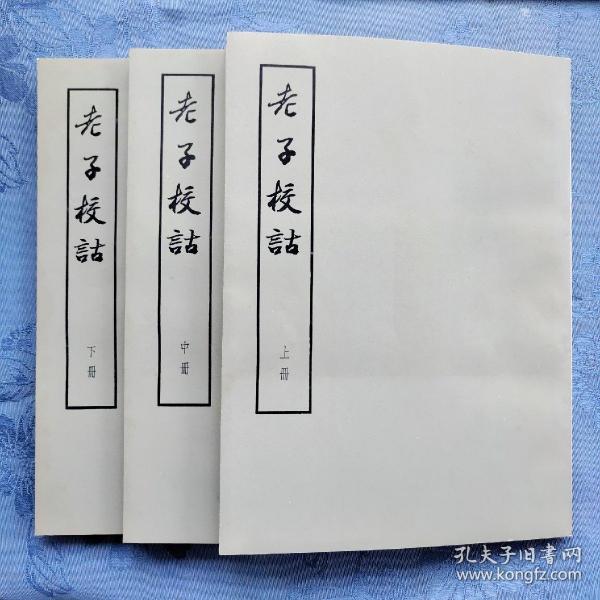 老子校詁
下冊
老子校詁
中冊
老子校詁
上冊
孔夫子旧書网
www.kongfz.com